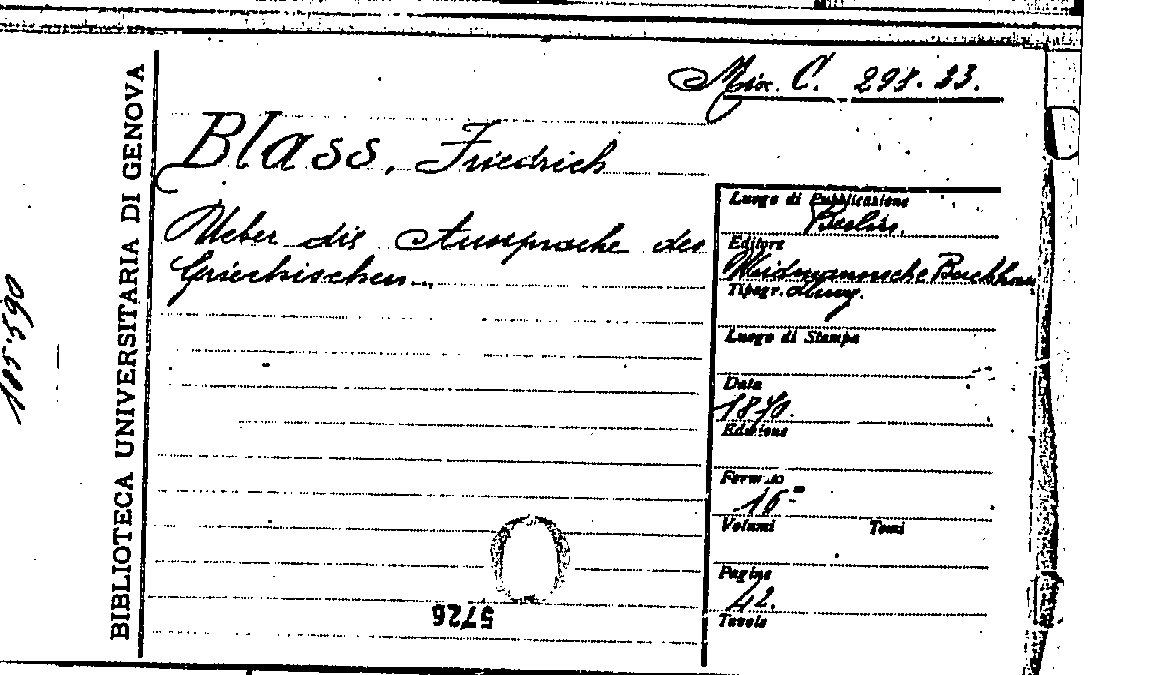 Mix. C. 298. 23.
Blass, Friedrich
Ueber die Aussprache des
Griechischen...
Luogo di Pubblicazione
Berlin.
Editore
Weidmannsche Buchhan
Tipogr. dlung.
Luogo di Stampa
Data
1870.
Edizione
Formato
16°
Volumi Tomi
Pagine
42.
Tavole
BIBLIOTECA UNIVERSITARIA DI GENOVA
105.590
5726